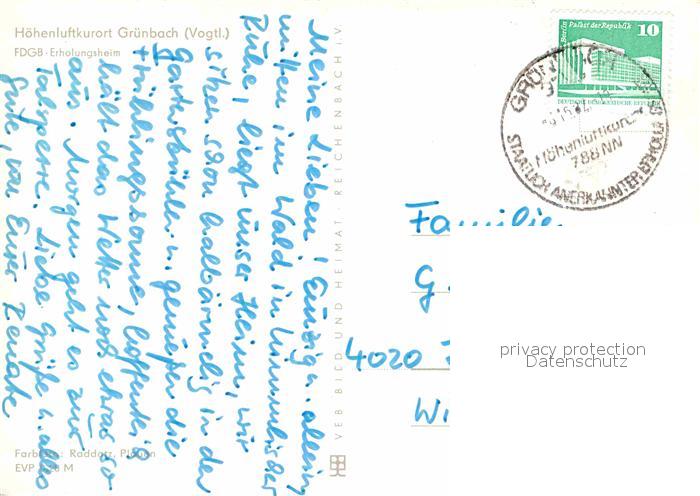 Höhenluftkurort Grünbach (Vogtl.)
FDGB-Erholungsheim
Meine Lieben! Einzig u. allein
mitten im Wald in himmlischer
Ruhe, liegt unser Heim, wir
sitzen schon halbärmelig in den
Gartenstühlen u. genießen die
Frühlingssonne, hoffentlich
hält das Wetter noch etwas so
aus. Morgen geht es zur
Talsperre. Liebe Grüße u. alles
Gute, von Eurer Renate
Farbfoto: Raddatz, Plauen
EVP M
VEB BILD UND HEIMAT REICHENBACH I.V.
Berlin, Palast der Republik
10
DEUTSCHE DEMOKRATISCHE REPUBLIK
Höhenluftkurort
788 NN
STAATLICH ANERKANNTER ERHOLUNGSORT
Familie
G.
4020
Wi
privacy protection
Datenschutz